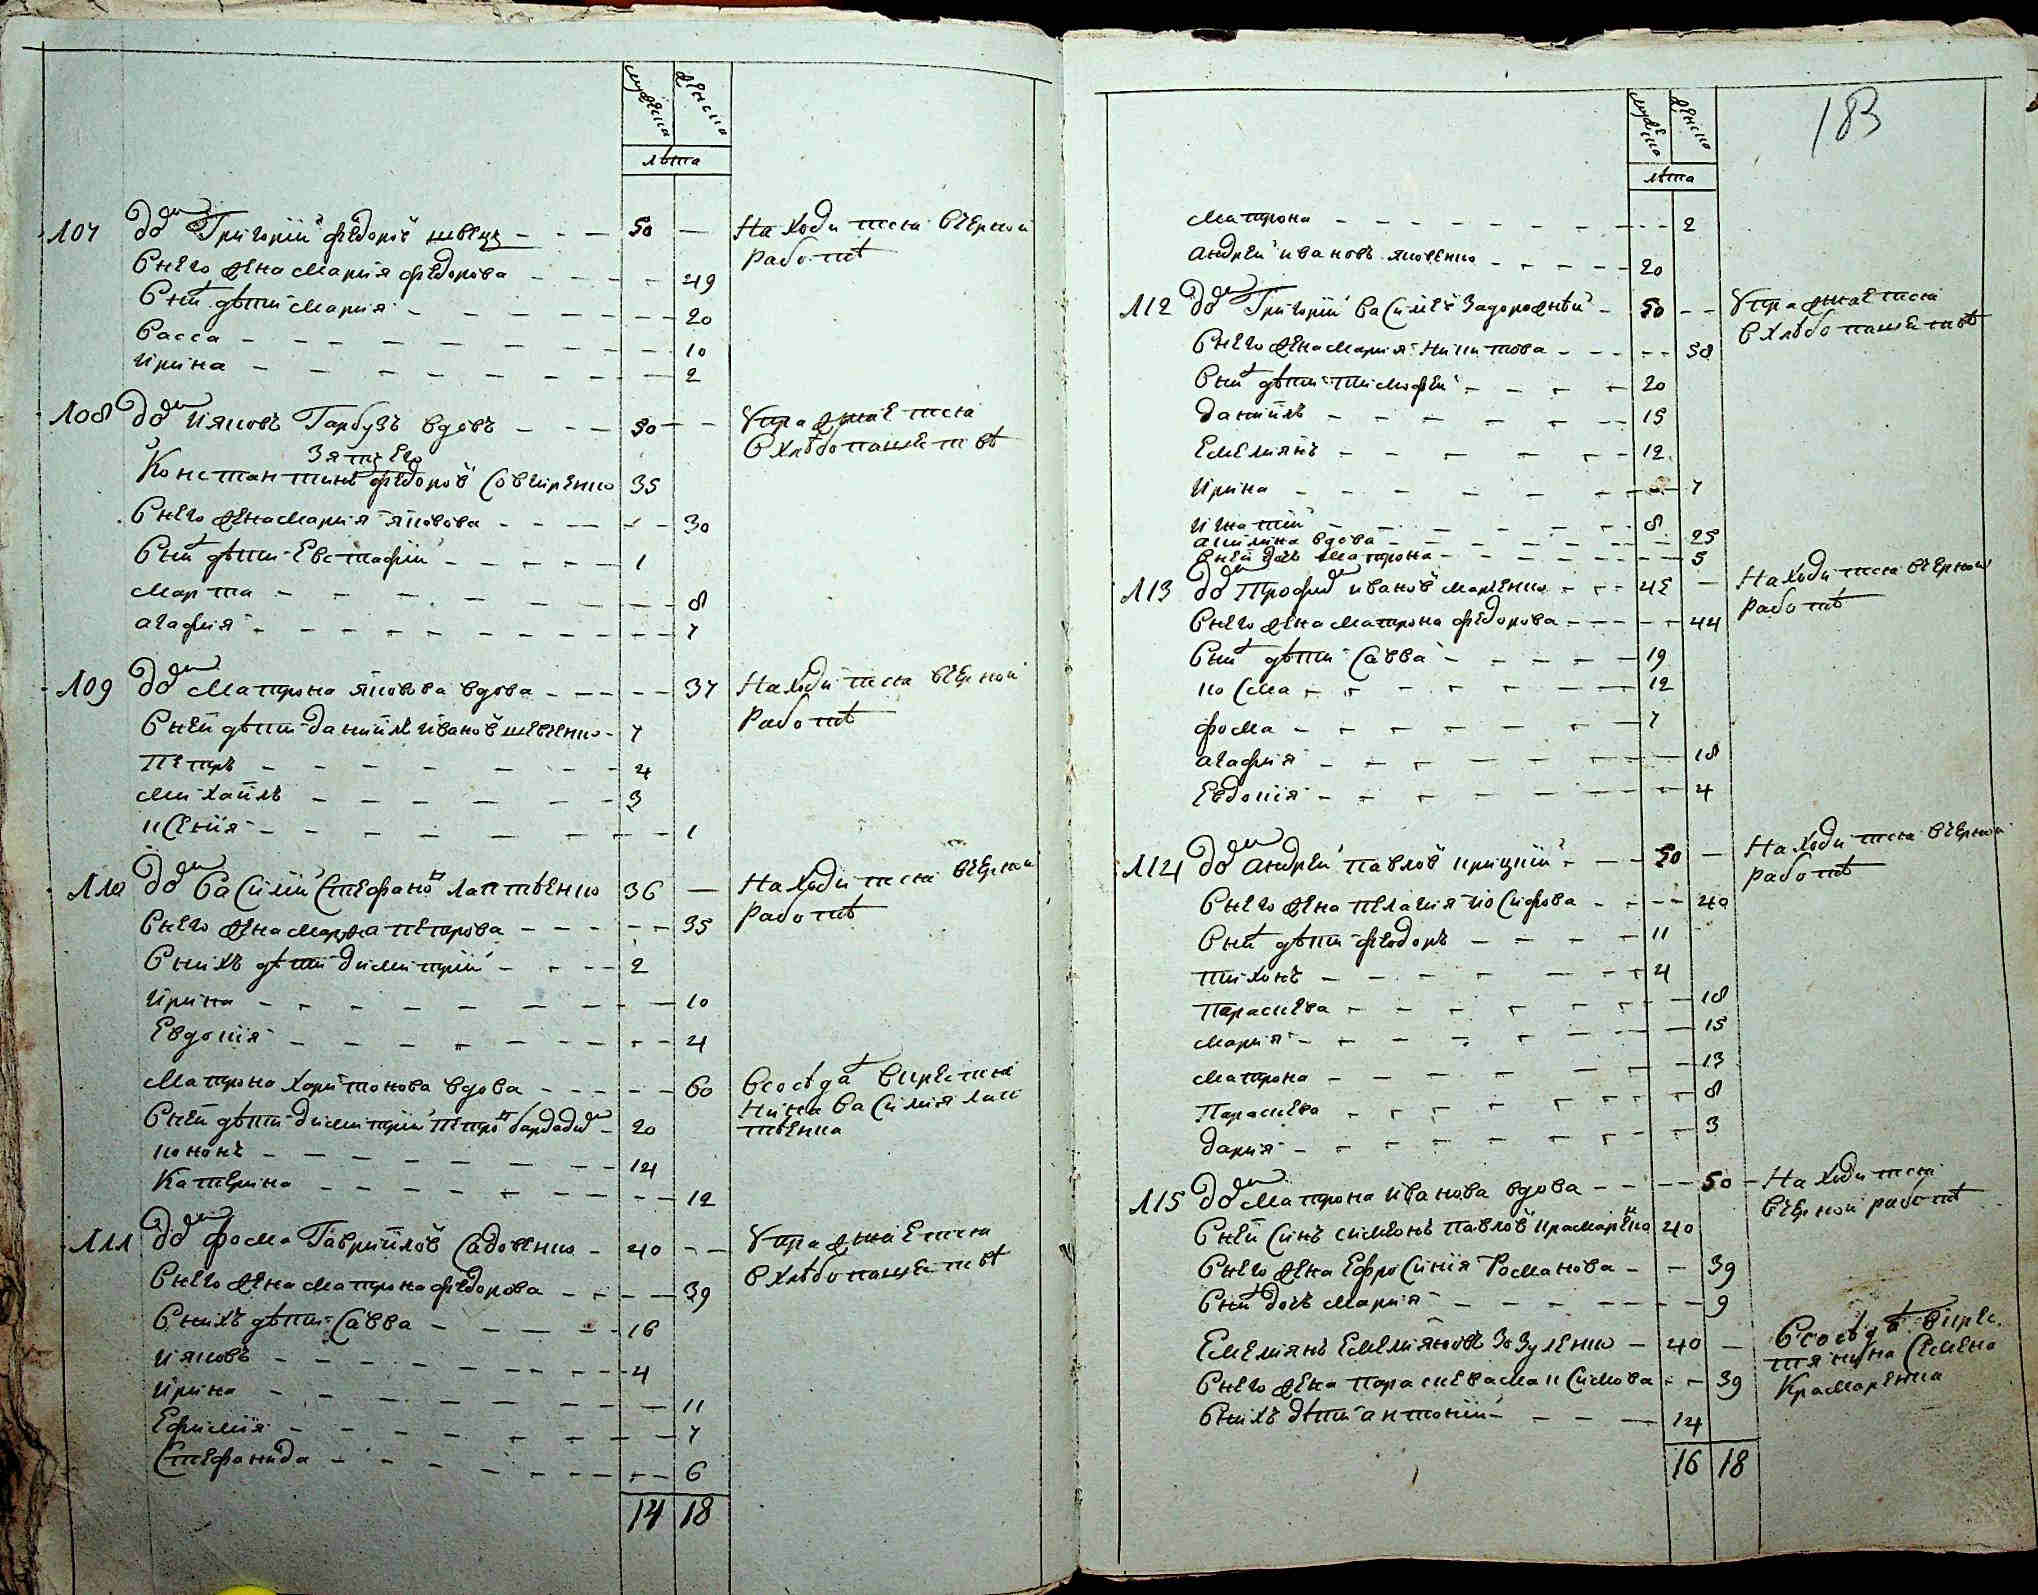 мужеска женска
лѣта
107 дом Григорій Федоровъ швецъ 50
Находится в черной
работѣ
В него жена Мария Федорова 49
В них дѣти Мария 20
Васса 10
Ирина 2
108 дом Ияковъ Гарбузъ вдовъ 50
Упражнается
в хлѣбопашествѣ
Зять Его
Константинъ Федоровъ 35
В него жена Мария Яковова 30
В них дѣти Евстафій 1
Марта 8
Агафия 7
109 дом Матрона Яковова вдова 37
Находится в черной
работѣ
В ней дѣти Даниилъ Ивановъ Шевченко 7
Петръ 4
Михаилъ 3
Ксения 1
110 дом Василій Стефановъ Лаптѣенко 36
Находится в черной
работѣ
В него жена Марфа Петрова 35
В нихъ дѣти Димитрій 2
Ирина 10
Евдокия 4
Матрона Харитонова вдова 60
В сосѣдах в крестья
нина Василия Лап
тѣенка
В ней дѣти Димитрій Петровъ 20
Кононъ 14
Катерина 12
111 дом Фома Гавриилов Садовенко 40
Упражнается
в хлѣбопашествѣ
В него жена Матрона Федорова 39
В нихъ дѣти Савва 16
Ияковъ 4
Ирина 11
Ефимия 7
Стефанида 6
14 18
183
мужеска женска
лѣта
Матрона 2
Андрей Ивановъ Яковенко 20
112 дом Григорій Васильевъ Задорожный 50
Упражнается
в хлѣбопашествѣ
В него жена Мария Никитова 58
В них дѣти Тимофей 20
Даниилъ 15
Емелиянъ 12
Ирина 7
Игнатій 8
Акилина вдова 25
В ней дочь Матрона 5
113 дом Трофим Ивановъ Марченко 45
Находится в черной
работѣ
В него жена Матрона Федорова 44
В них дѣти Савва 19
Косма 12
Фома 7
Агафия 18
Евдокия 4
114 дом Андрей Павловъ Крицкий 50
Находится в черной
работѣ
В него жена Пелагия Иосифова 40
В них дѣти Феодоръ 11
Тихонъ 4
Параскева 18
Мария 15
Матрона 13
Параскева 8
Дария 3
115 дом Матрона Иванова вдова 50
Находится
в черной работѣ
В ней синъ Симеонъ Павловъ Крамаренко 40
В него жена Ефросиния Романова 39
В них дочь Мария 9
Емелиянъ Емелияновъ Зозуленко 40
В сосѣдах в крес
тянина Семена
Крамаренка
В него жена Параскева Максимова 39
В нихъ дѣти Антоній 14
16 18